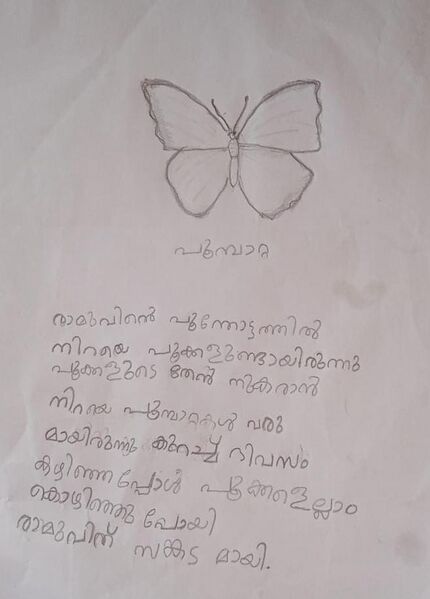 പൂമ്പാറ്റ
രാമുവിന്റെ പൂന്തോട്ടത്തിൽ
നിറയെ പൂക്കളുണ്ടായിരുന്നു
പൂക്കളുടെ തേൻ നുകരാൻ
നിറയെ പൂമ്പാറ്റകൾ വരു
മായിരുന്നു കുറച്ച് ദിവസം
കഴിഞ്ഞപ്പോൾ പൂക്കളെല്ലാം
കൊഴിഞ്ഞു പോയി
രാമുവിന് സങ്കട മായി.